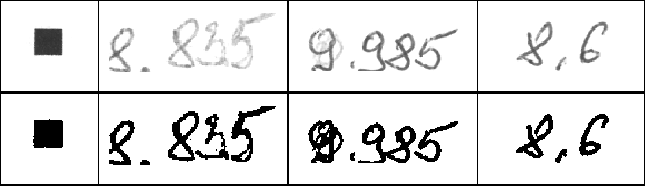 8.835 9.985 8,6
8.835 9.985 8,6